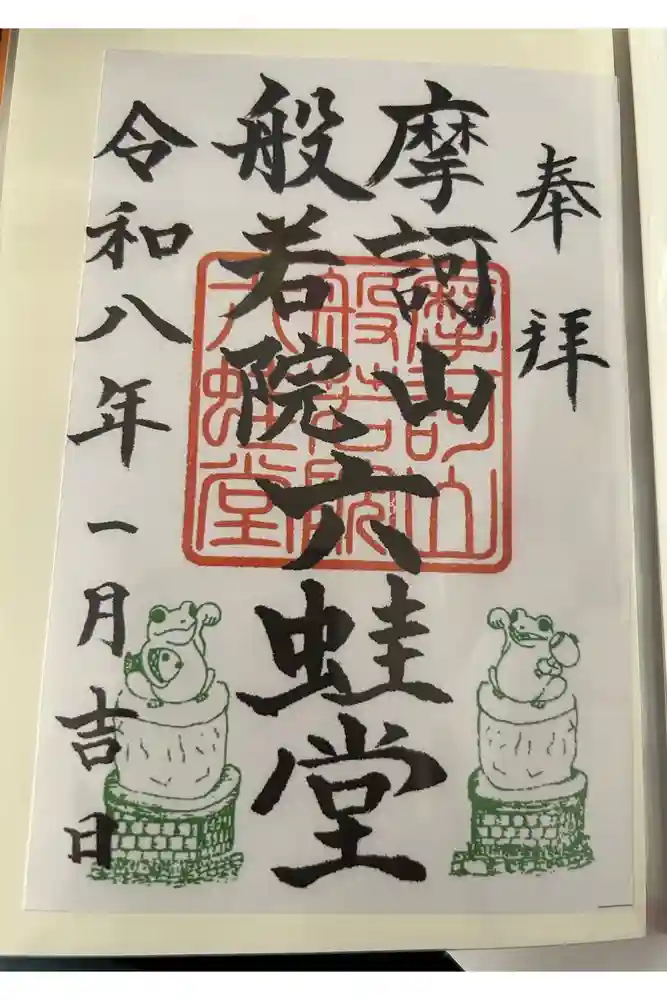 奉拝
摩訶山
般若院
六蛙堂
令和八年一月吉日
摩訶山
般若院
六蛙堂